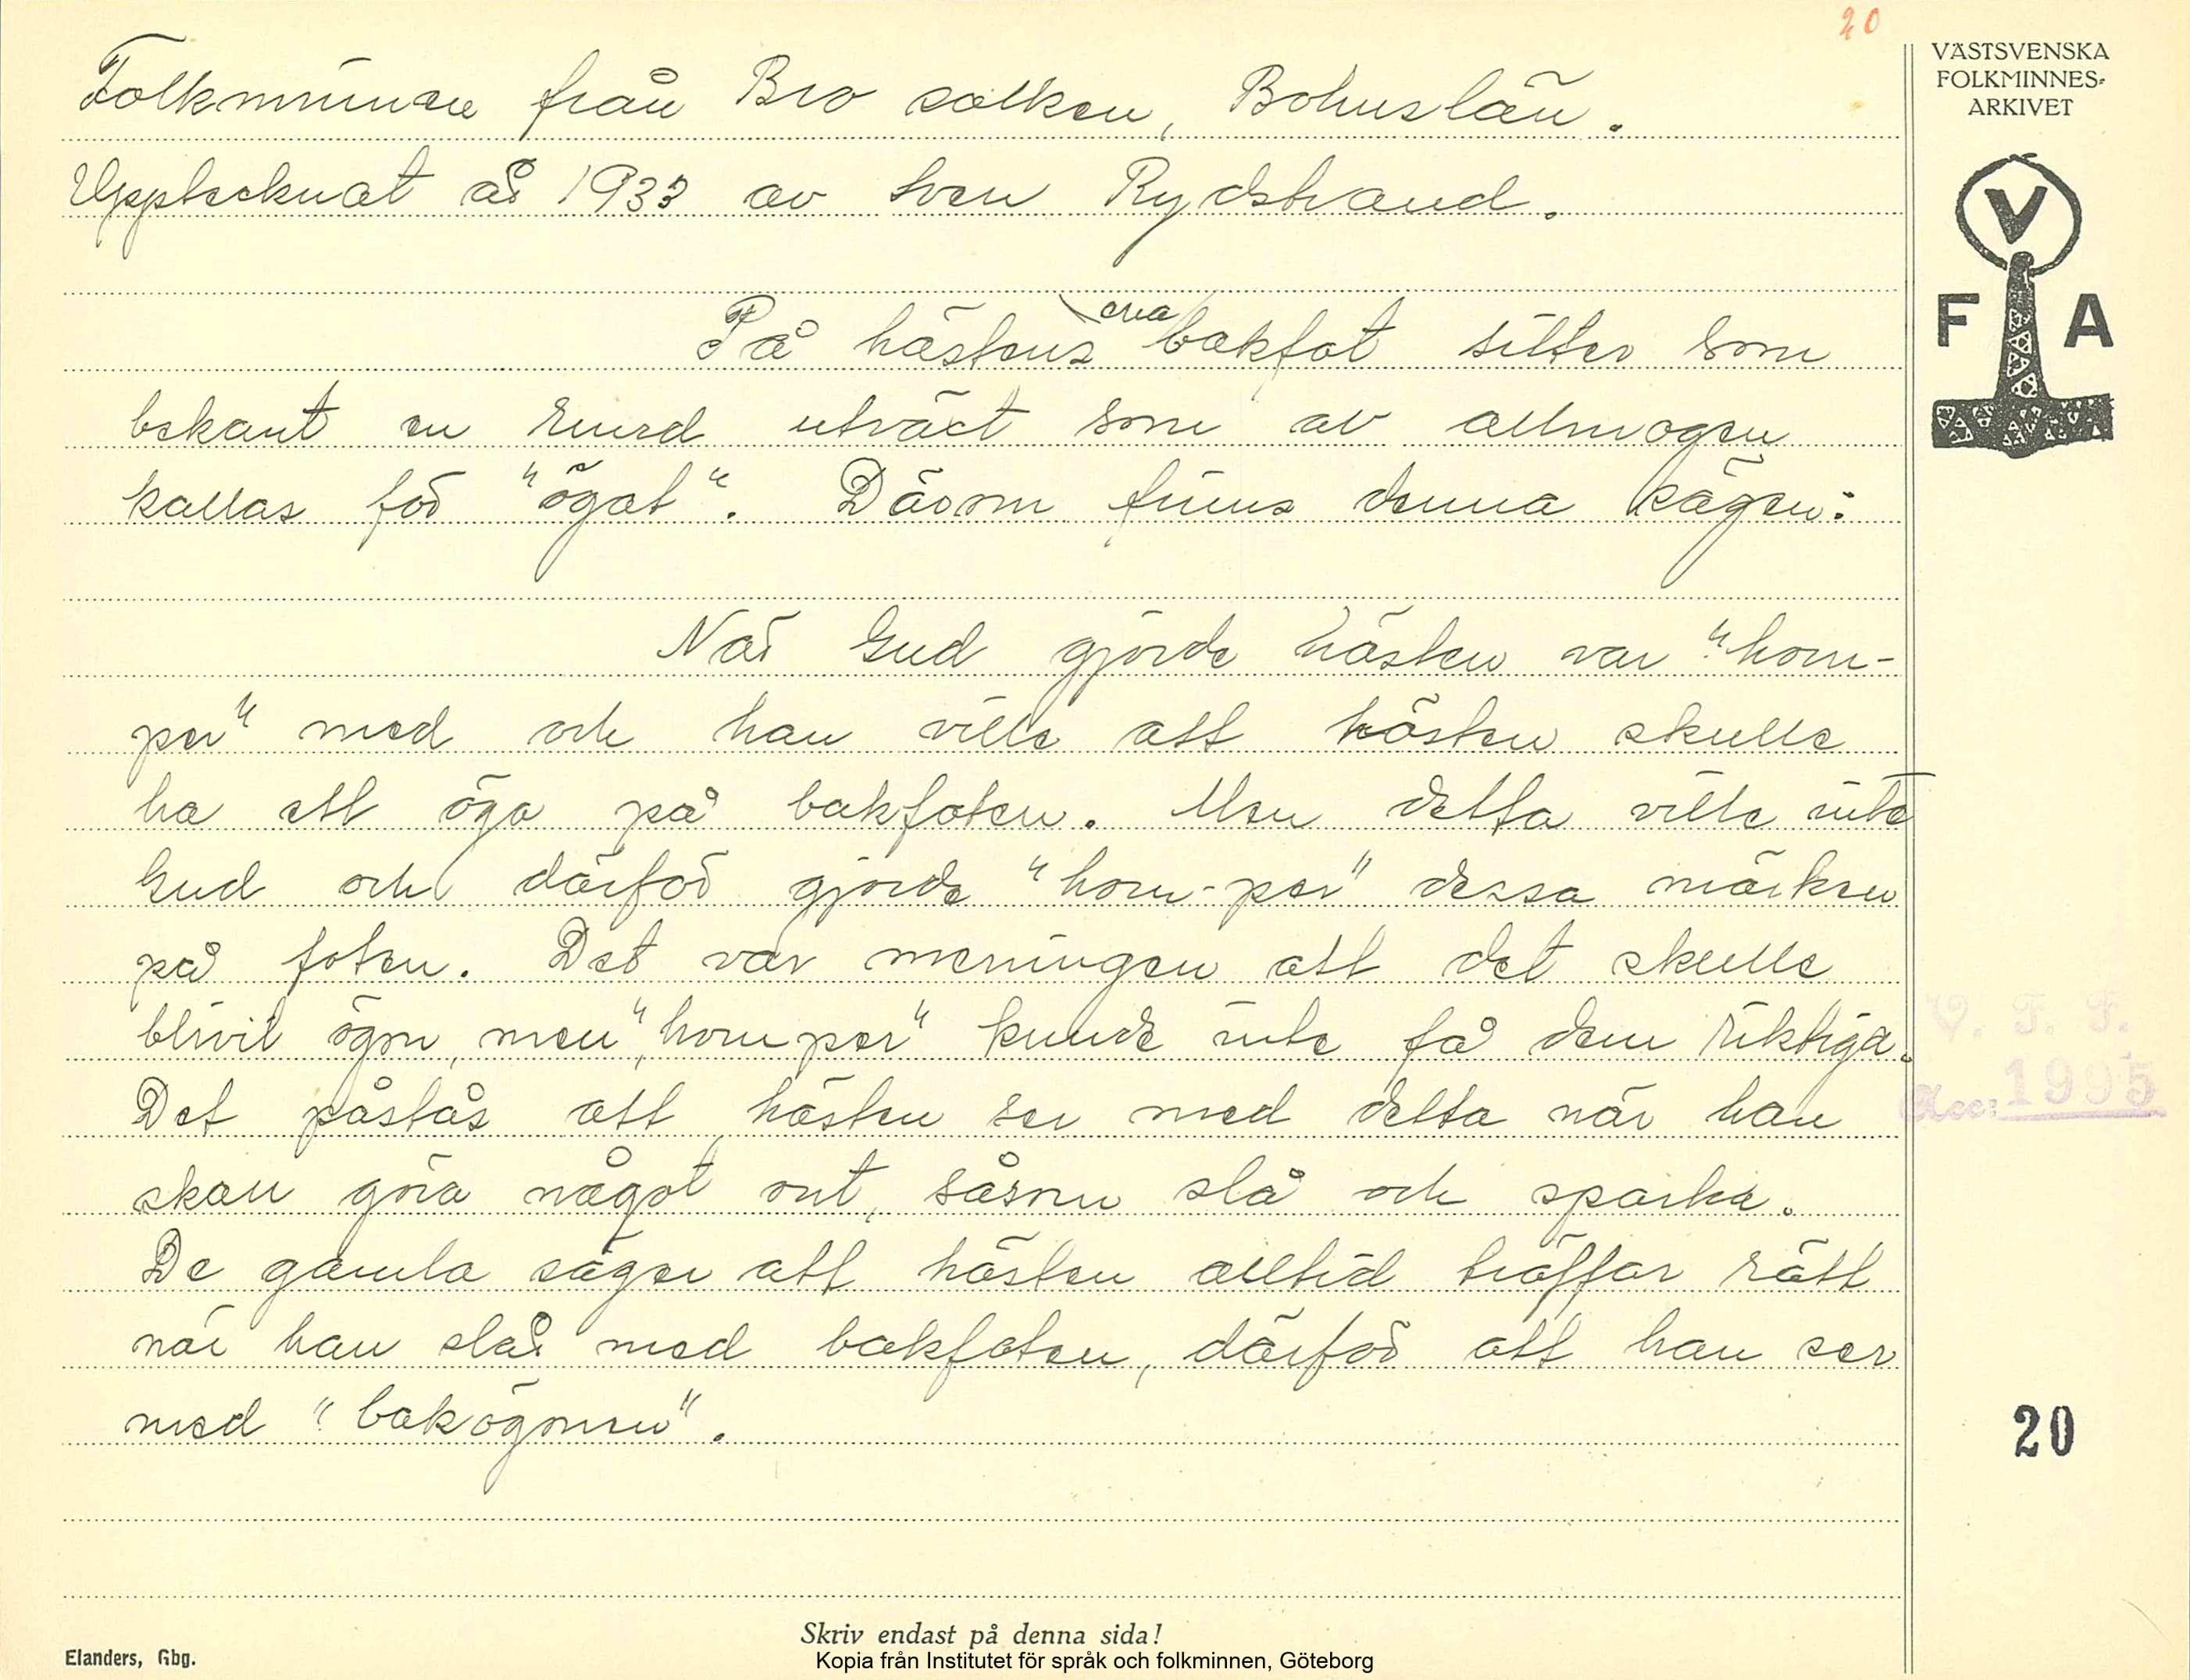 20
VÄSTSVENSKA
FOLKMINNES-
ARKIVET
V
F A
Folkminnen från Bro socken, Bohuslän.
Upptecknat år 1933 av Sven Rydstrand.
På hästens ena bakfot sitter som
bekant en rund utväxt som av allmogen
kallas för "ögat". Därom finns denna sägen:
När Gud gjorde hästen var "horn-
per" med och han ville att hästen skulle
ha ett öga på bakfoten. Men detta ville inte
Gud och därför gjorde "horn-per" dessa märken
på foten. Det var meningen att det skulle
blivit ögon, men "horn per" kunde inte få dem riktiga.
Det påstås att hästen ser med detta när han
skall göra något ont, såsom slå och sparka.
De gamla säger att hästen alltid träffar rätt
när han slår med bakfoten, därför att han ser
med "bakögonen".
V. F. F.
Acc: 1995
20
Skriv endast på denna sida!
Elanders, Gbg.
Kopia från Institutet för språk och folkminnen, Göteborg